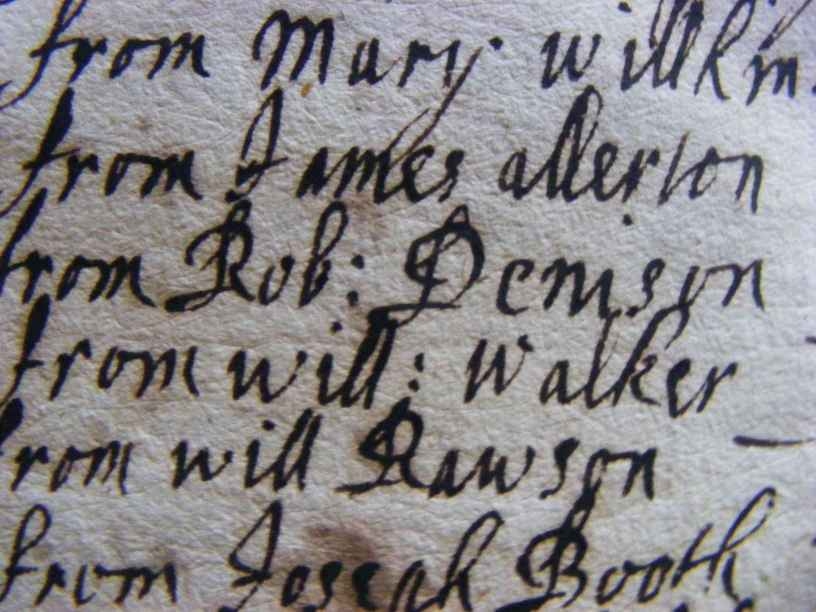 from Mary willkin
from James allerton
from Rob: Denison
from will: Walker
from will Rawson
from Joseah Booth